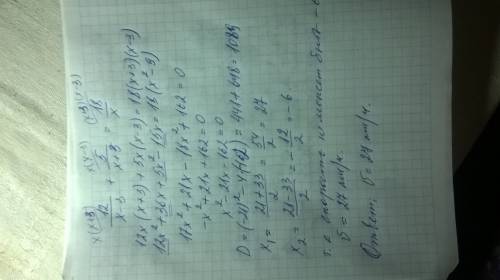 x(x+3) x(x-3) (x+3)(x-3)
12/(x-3) + 5/(x+3) = 18/x
12x(x+3) + 5x(x-3) = 18(x+3)(x-3)
12x² + 36x + 5x² - 15x = 18(x² - 9)
17x² + 21x - 18x² + 162 = 0
-x² + 21x + 162 = 0
x² - 21x - 162 = 0
D = (-21)² - 4·(-162) = 441 + 648 = 1089
x₁ = (21+33)/2 = 54/2 = 27
x₂ = (21-33)/2 = -12/2 = -6
т.к скорость не может быть -
v = 27 км/ч.
Ответ. v = 27 км/ч.